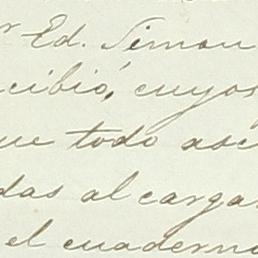 r Ed. Simon
cibió, cuyos
ue todo asc
das al cargar
el cuaderno